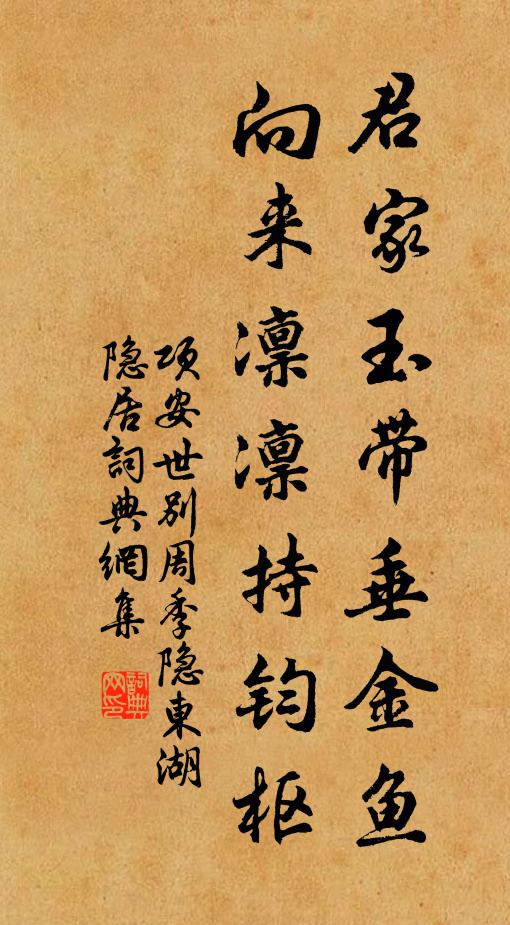 君家玉带垂金鱼
向来凛凛持钧枢
项安世别周季隐東湖
隐居詞典網集
詞典网印